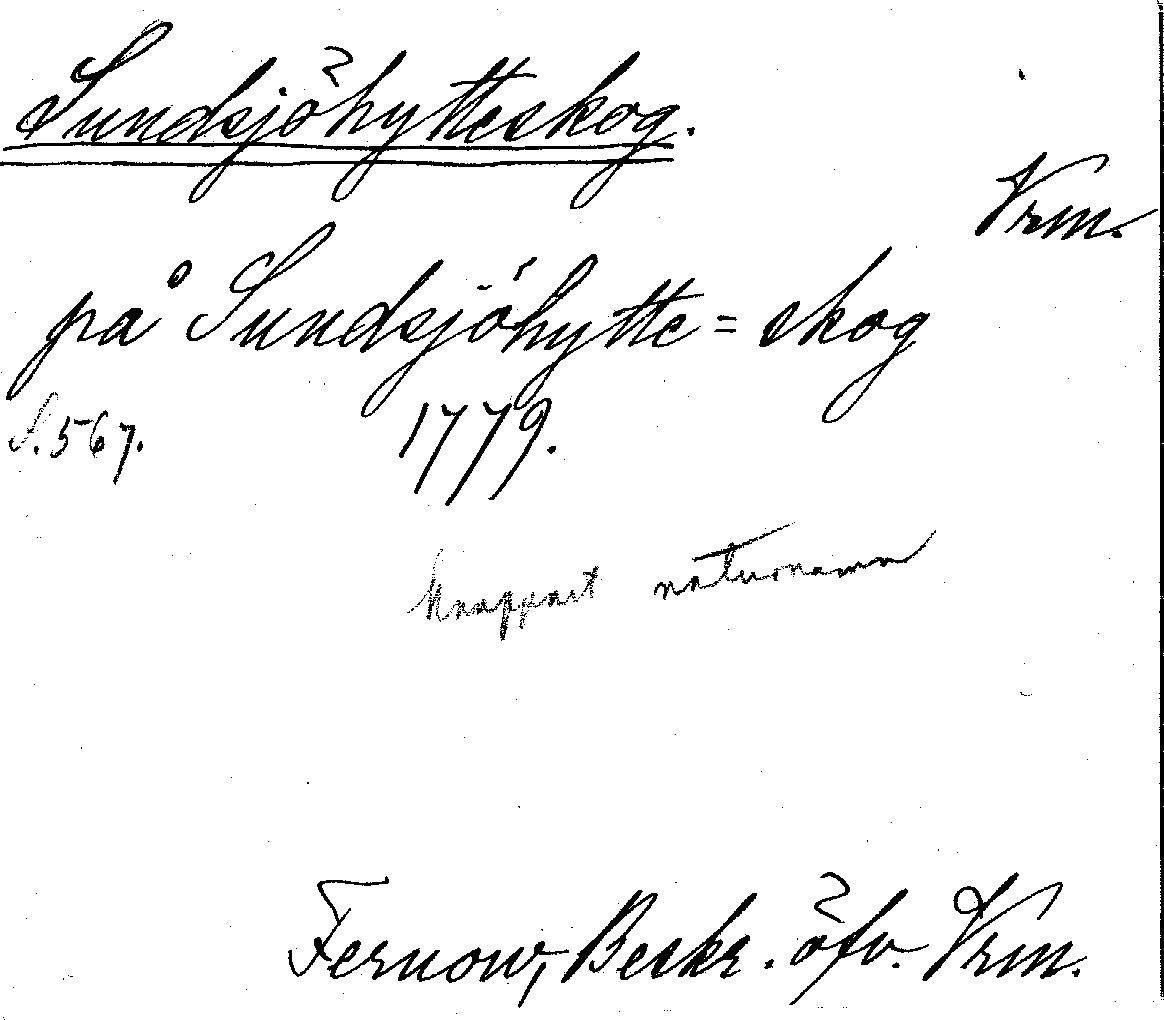 Sundsjöhytteskog.
Vrm.
på Sundsjöhytte=skog
S. 567. 1779.
knappast naturnamn
Fernow, Beskr. öfv. Vrm.